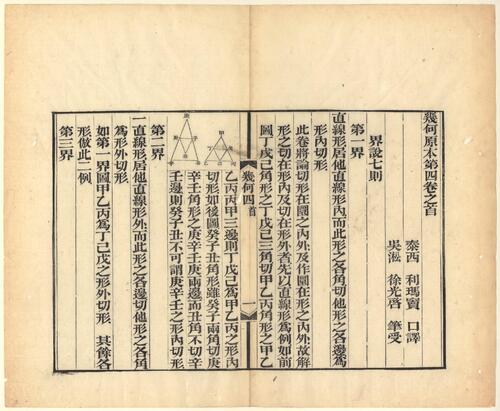 幾何原本第四卷之首
泰西 利瑪竇 口譯
吳淞 徐光啓 筆受
界說七則
第一界
直線形居他直線形內而此形之各角切他形之各邊爲
形內切形
此卷將論切形在圜之內外及作圜在形之內外故解
形之切在形內及切在形外者先以直線形爲例如前
圖丁戊己角形之丁戊己三角切甲乙丙角形之甲乙
幾何四首
一
乙丙丙甲三邊則丁戊己爲甲乙丙之形內
切形如後圖癸子丑角形雖癸子兩角切庚
辛壬角形之庚辛壬庚兩邊而丑角不切辛
壬邊則癸子丑不可謂庚辛壬之形內切形
第二界
一直線形居他直線形外而此形之各邊切他形之各角
爲形外切形
如第一界圖甲乙丙爲丁己戊之形外切形 其餘各
形倣此二例
第三界